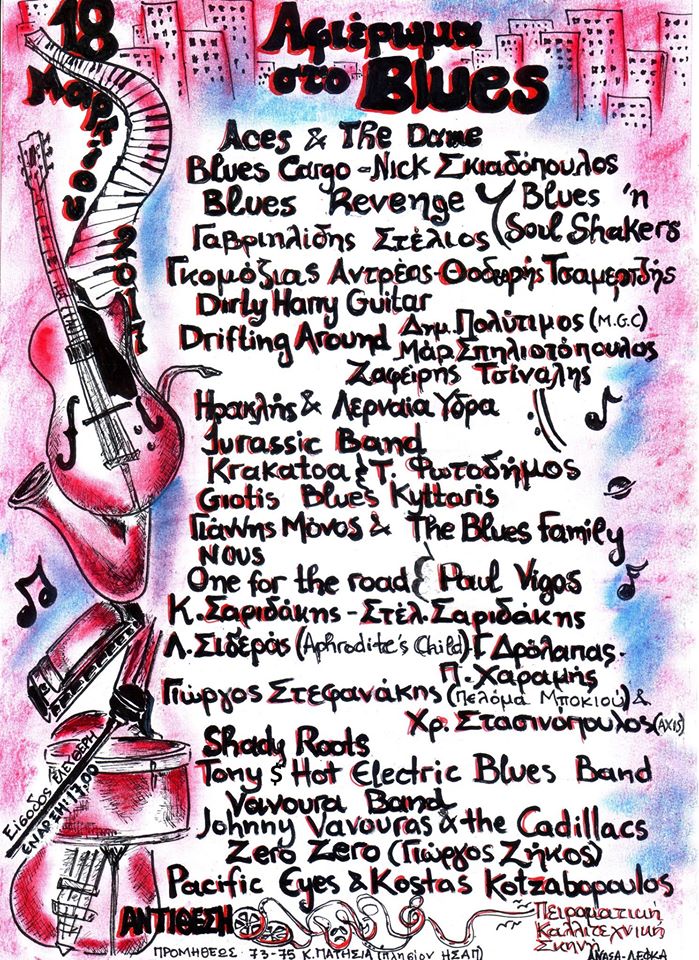 18
Μαρτίου
2017
Αφιέρωμα
στο Blues
Aces & The Dame
Blues Cargo - Nick Σκιαδόπουλος
Blues Revenge
Blues 'n
Soul Shakers
Γαβριηλίδης Στέλιος
Γκομόζιας Αντρέας - Θοδωρής Τσαμερτζής
Dirty Harry Guitar
Drifting Around
Δημ. Πολύτιμος (M.G.C)
Μάρ. Σπηλιοτόπουλος
Ζαφείρης Τσίναλης
Ηρακλής & Λερναία Ύδρα
Jurassic Band
Krakatoa & Τ. Φωτοδήμος
Giotis Blues Kyttaris
Γιάννης Μόνος & The Blues Family
NOUS
One for the road
Paul Vigos
Κ. Σαριδάκης - Στέλ. Σαριδάκης
Λ. Σιδεράς (Aphrodite's Child) - Γ. Δρόλαπας -
Π. Χαραμής
Γιώργος Στεφανάκης (Πελόμα Μποκιού) &
Χρ. Στασινόπουλος (AXIS)
Shady Roots
Tony's Hot Electric Blues Band
Vavoura Band
Johnny Vavouras & the Cadillacs
Zero Zero (Γιώργος Ζήκος)
Pacific Eyes & Kostas Kotzabopoulos
Είσοδος ΕΛΕΥΘΕΡΗ
ΕΝΑΡΞΗ: 17,00
ΑΝΤΙΘΕΣΗ
Πειραματική
Καλλιτεχνική
Σκηνή
ΠΡΟΜΗΘΕΩΣ 73-75 Κ. ΠΑΤΗΣΙΑ (πλησίον ΗΣΑΠ)
ΑΝΑΣΑ - ΛΕΦΚΑ